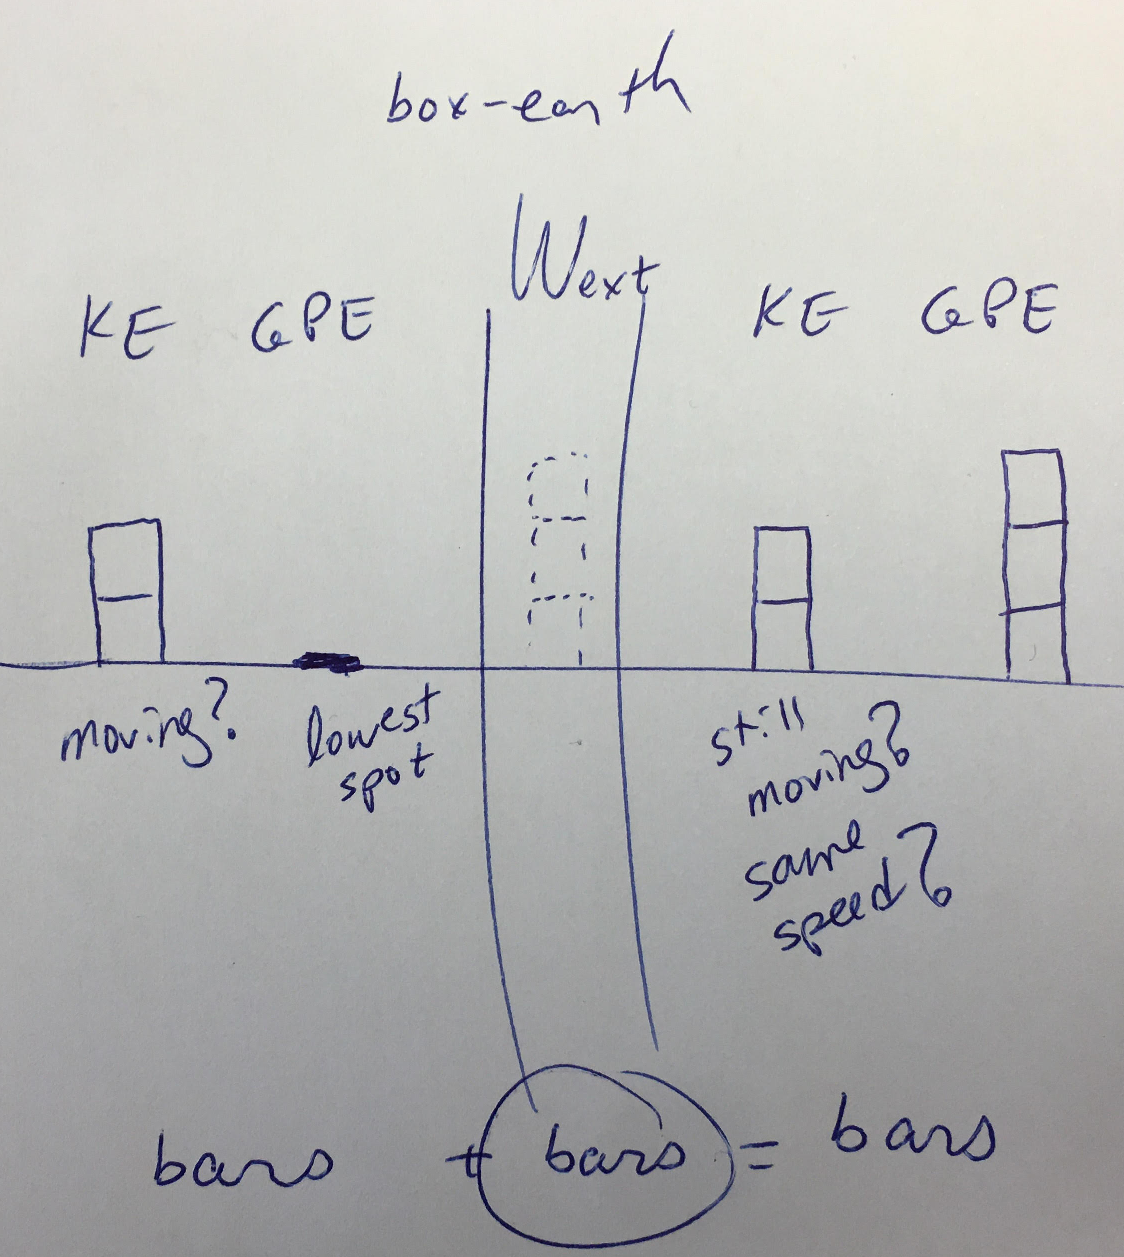 box-earth
Wext
KE GPE
KE GPE
moving?
lowest
spot
still
moving?
same
speed?
bars + bars = bars